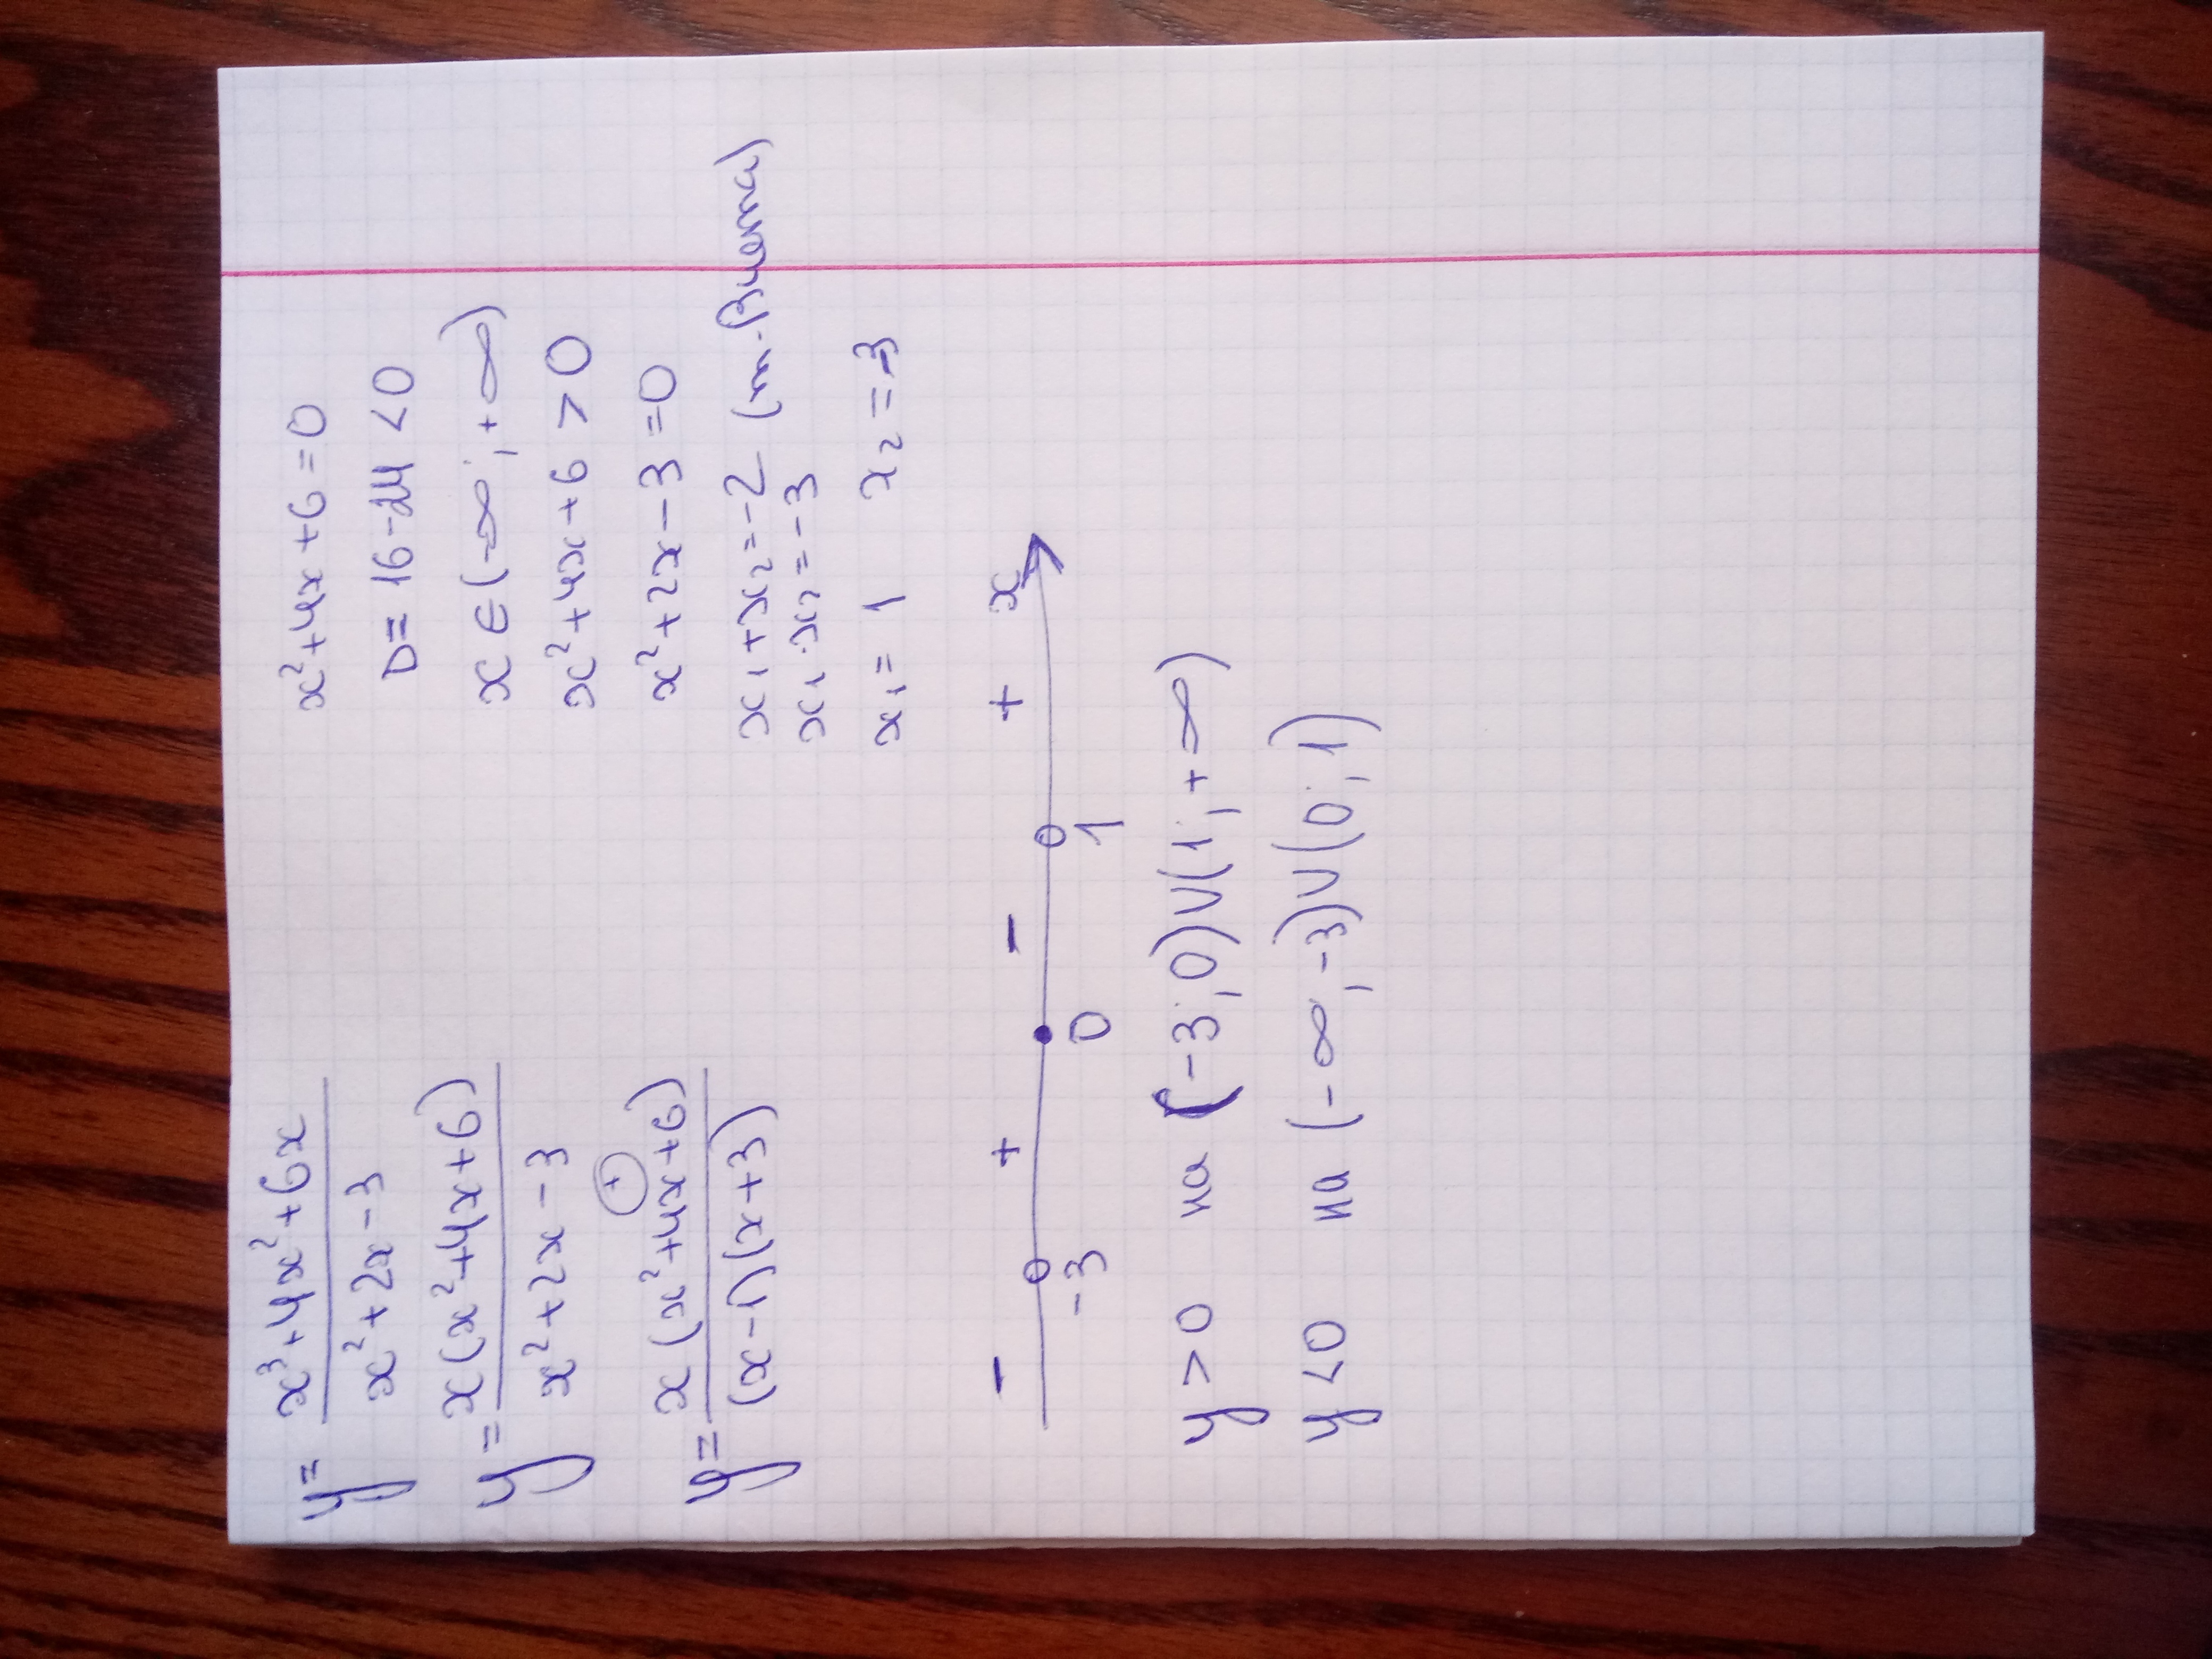 y = (x³+4x²+6x)/(x²+2x-3)
y = x(x²+4x+6)/(x²+2x-3)
+
y = x(x²+4x+6)/((x-1)(x+3))
x²+4x+6=0
D= 16-24 <0
x ∈ (-∞; +∞)
x²+4x+6 > 0
x²+2x-3=0
x₁+x₂=-2 (т. Виета)
x₁·x₂=-3
x₁= 1 x₂=-3
- + - + x
-3 0 1
y > 0 на (-3; 0)∪(1; +∞)
y <0 на (-∞; -3)∪(0; 1)